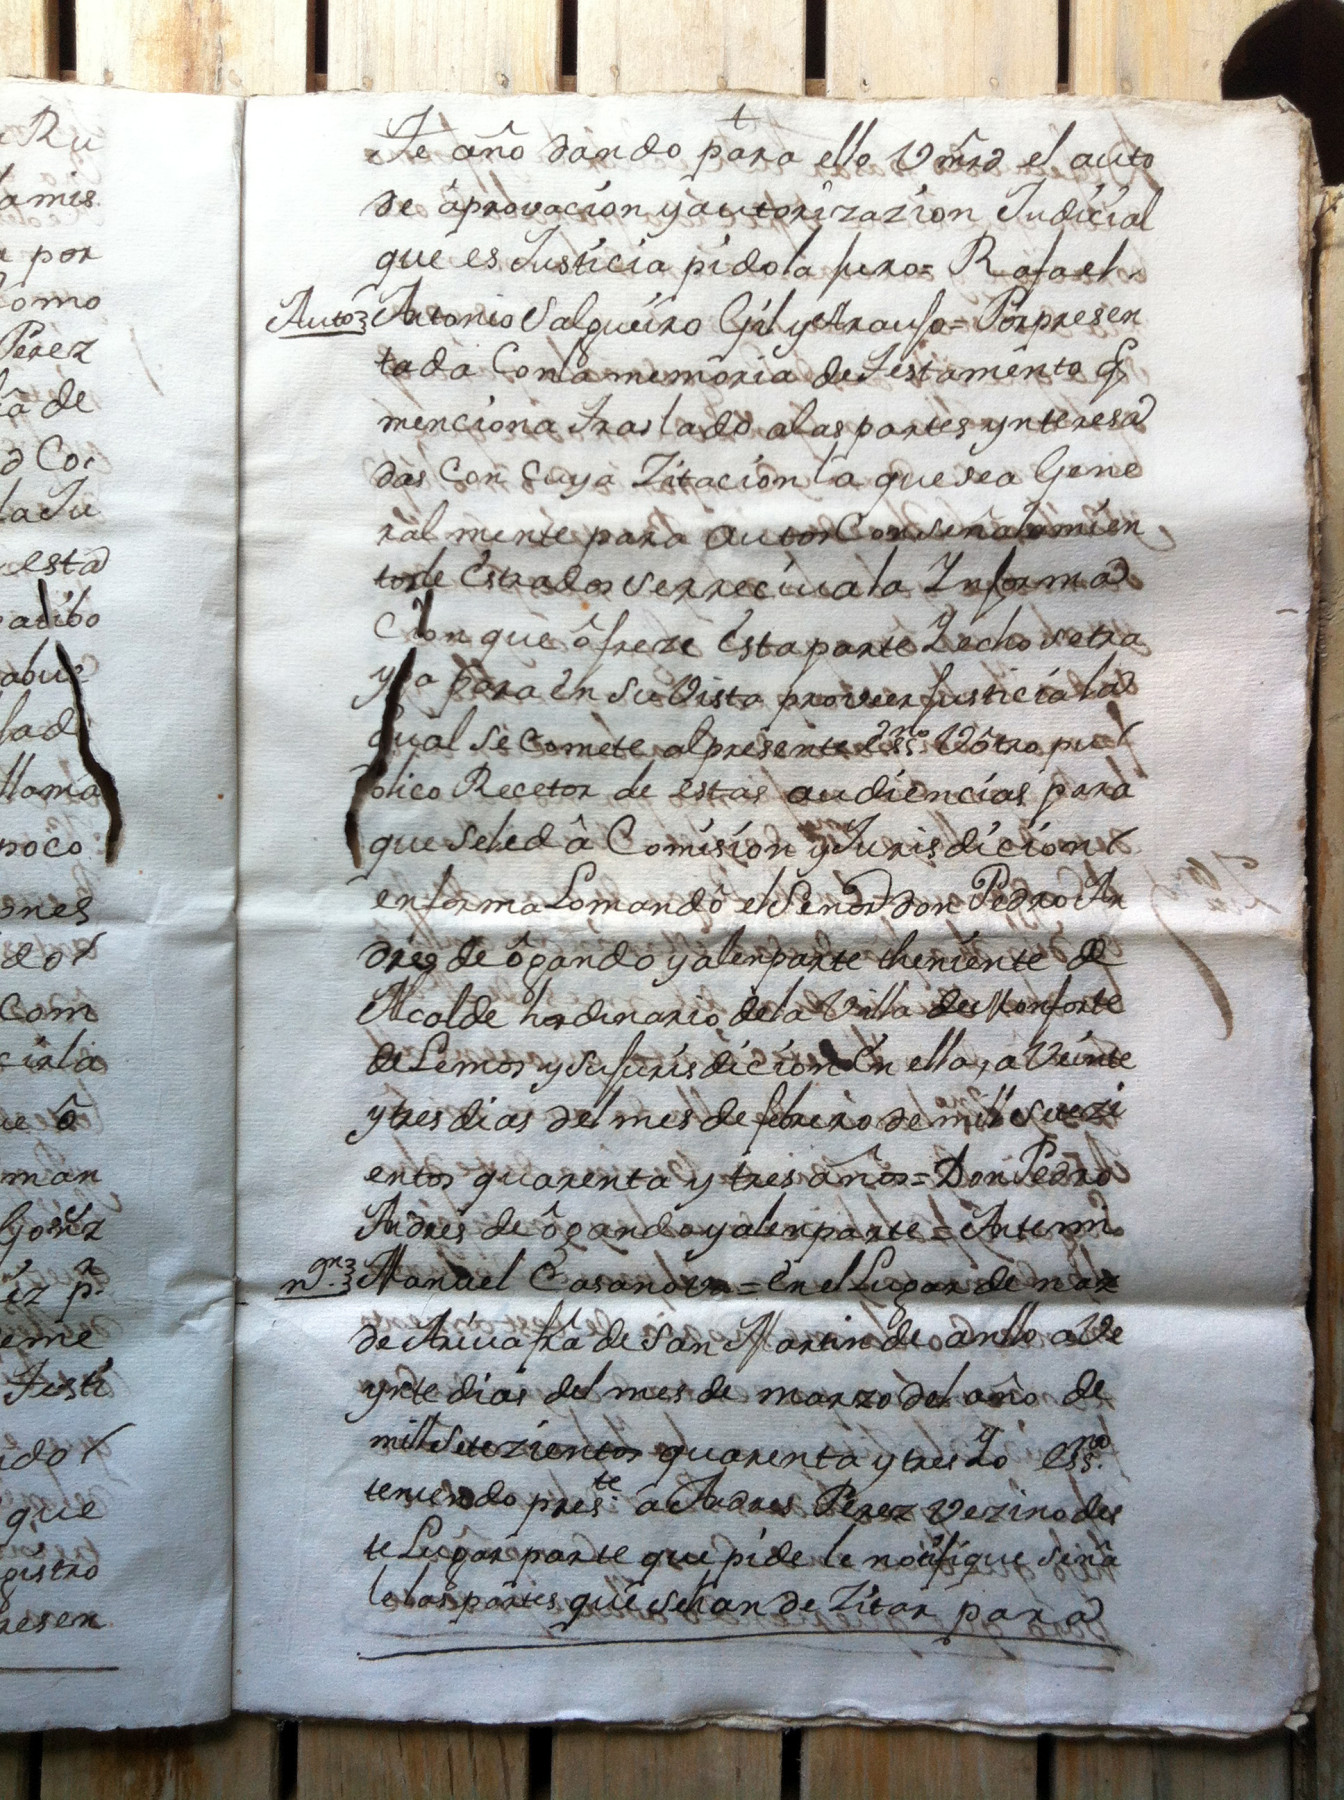 Ru
amis
por
Como
Perez
de
Co
la Ju
esta
aribo
abue
lad
llama
poco
ones
do
Com
cirla
ue ô
man
Gomez
ez
eme
Justi
ido
que
gistro
resen
te año dando para ello Vmrd el auto
de âprovacion y autorizazion Judicial
que es Justicia pido la juro = Rafael
Auto Antonio Salgueiro Gil y Araujo = Por presen
tada Con la memoria de Testamento q
menciona Traslado a las partes ynteresa
das Con Cuya Zitacion la que sea Gene
ral mente para autos Con señalamien
tos de Estrados se rreciua la Informa
Cion que ôfreze esta parte Y echo se tra
yga para en su Vista proveer Justicia la
qual se Comete al presente essno V ôtro pu
blico Recetor de estas audiencias para
que se le dâ Comision y Jurisdicion
en forma Lo mandô el Señor don Pedro An
dres de ôgando y alenparte theniente de
Alcalde hordinario de la Villa de Monforte
de Lemos y su Jurisdicion En ella, a Veinte
y tres dias del mes de febrero de mill Setezi
entos quarenta y tres años = Don Pedro
Andres de ôgando y alenparte = Ante mi
Manuel Casanova = En el Lugar de naz
de Ariua fra de San Martin de anllo a Ve
ynte dias del mes de marzo del año de
mill Setezientos quarenta y tres Yo essno
teniendo preste a Andres Perez Vezino des
te Lugar parte que pide le notifique seña
le las partes que se han de Zitar para